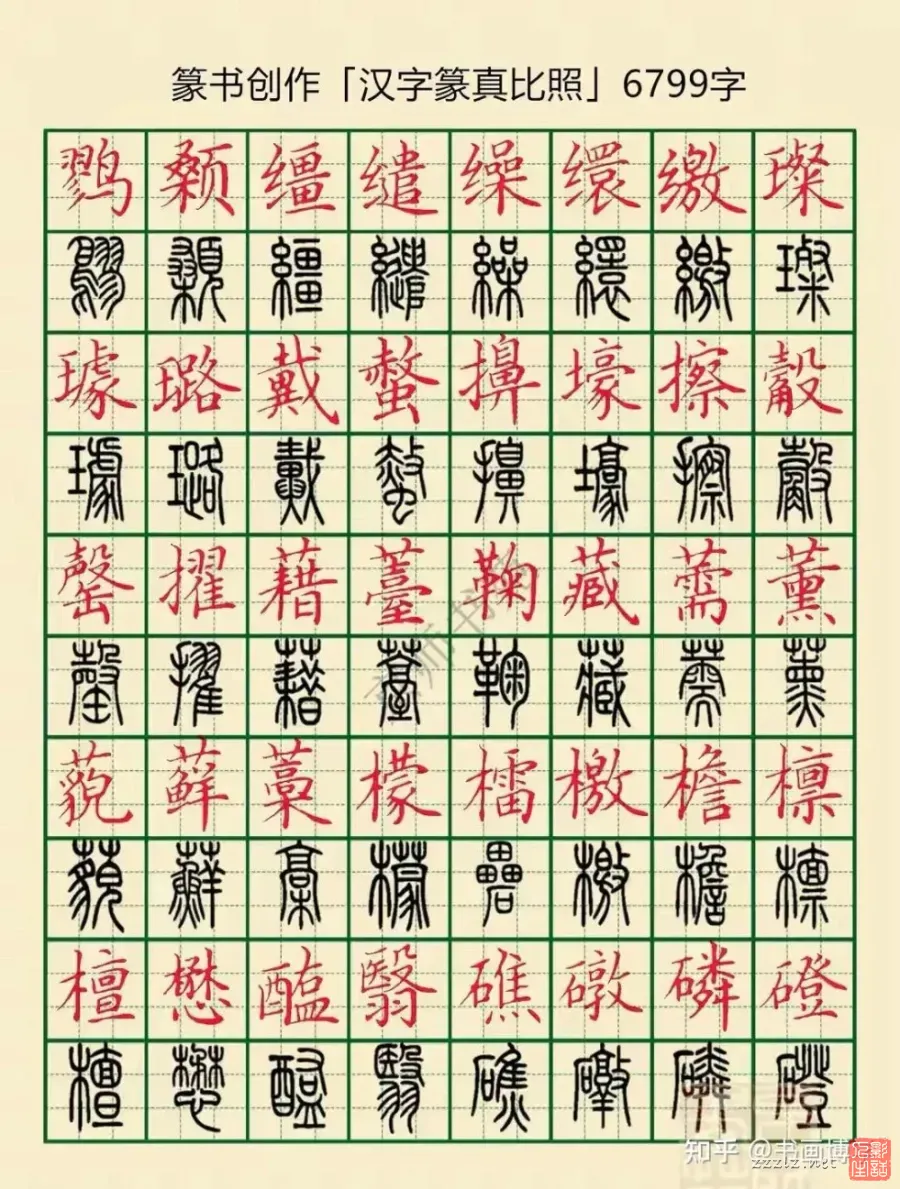 篆书创作「汉字篆真比照」6799字
鹨颡缰缱缲缳缴璨
鷚顙繮繾繰繯繳璨
璩璐戴螫擤壕擦觳
璩璐戴螫擤壕擦觳
罄擢藉薹鞠藏薷薰
罄擢藉薹鞠藏薷薰
藐藓藁檬檑檄檐檩
藐蘚檬檄檐檩
檀懋醢翳礁礅磷磴
檀懋醢翳礁礅磷磴
知乎 @书画博
zzzlz.net